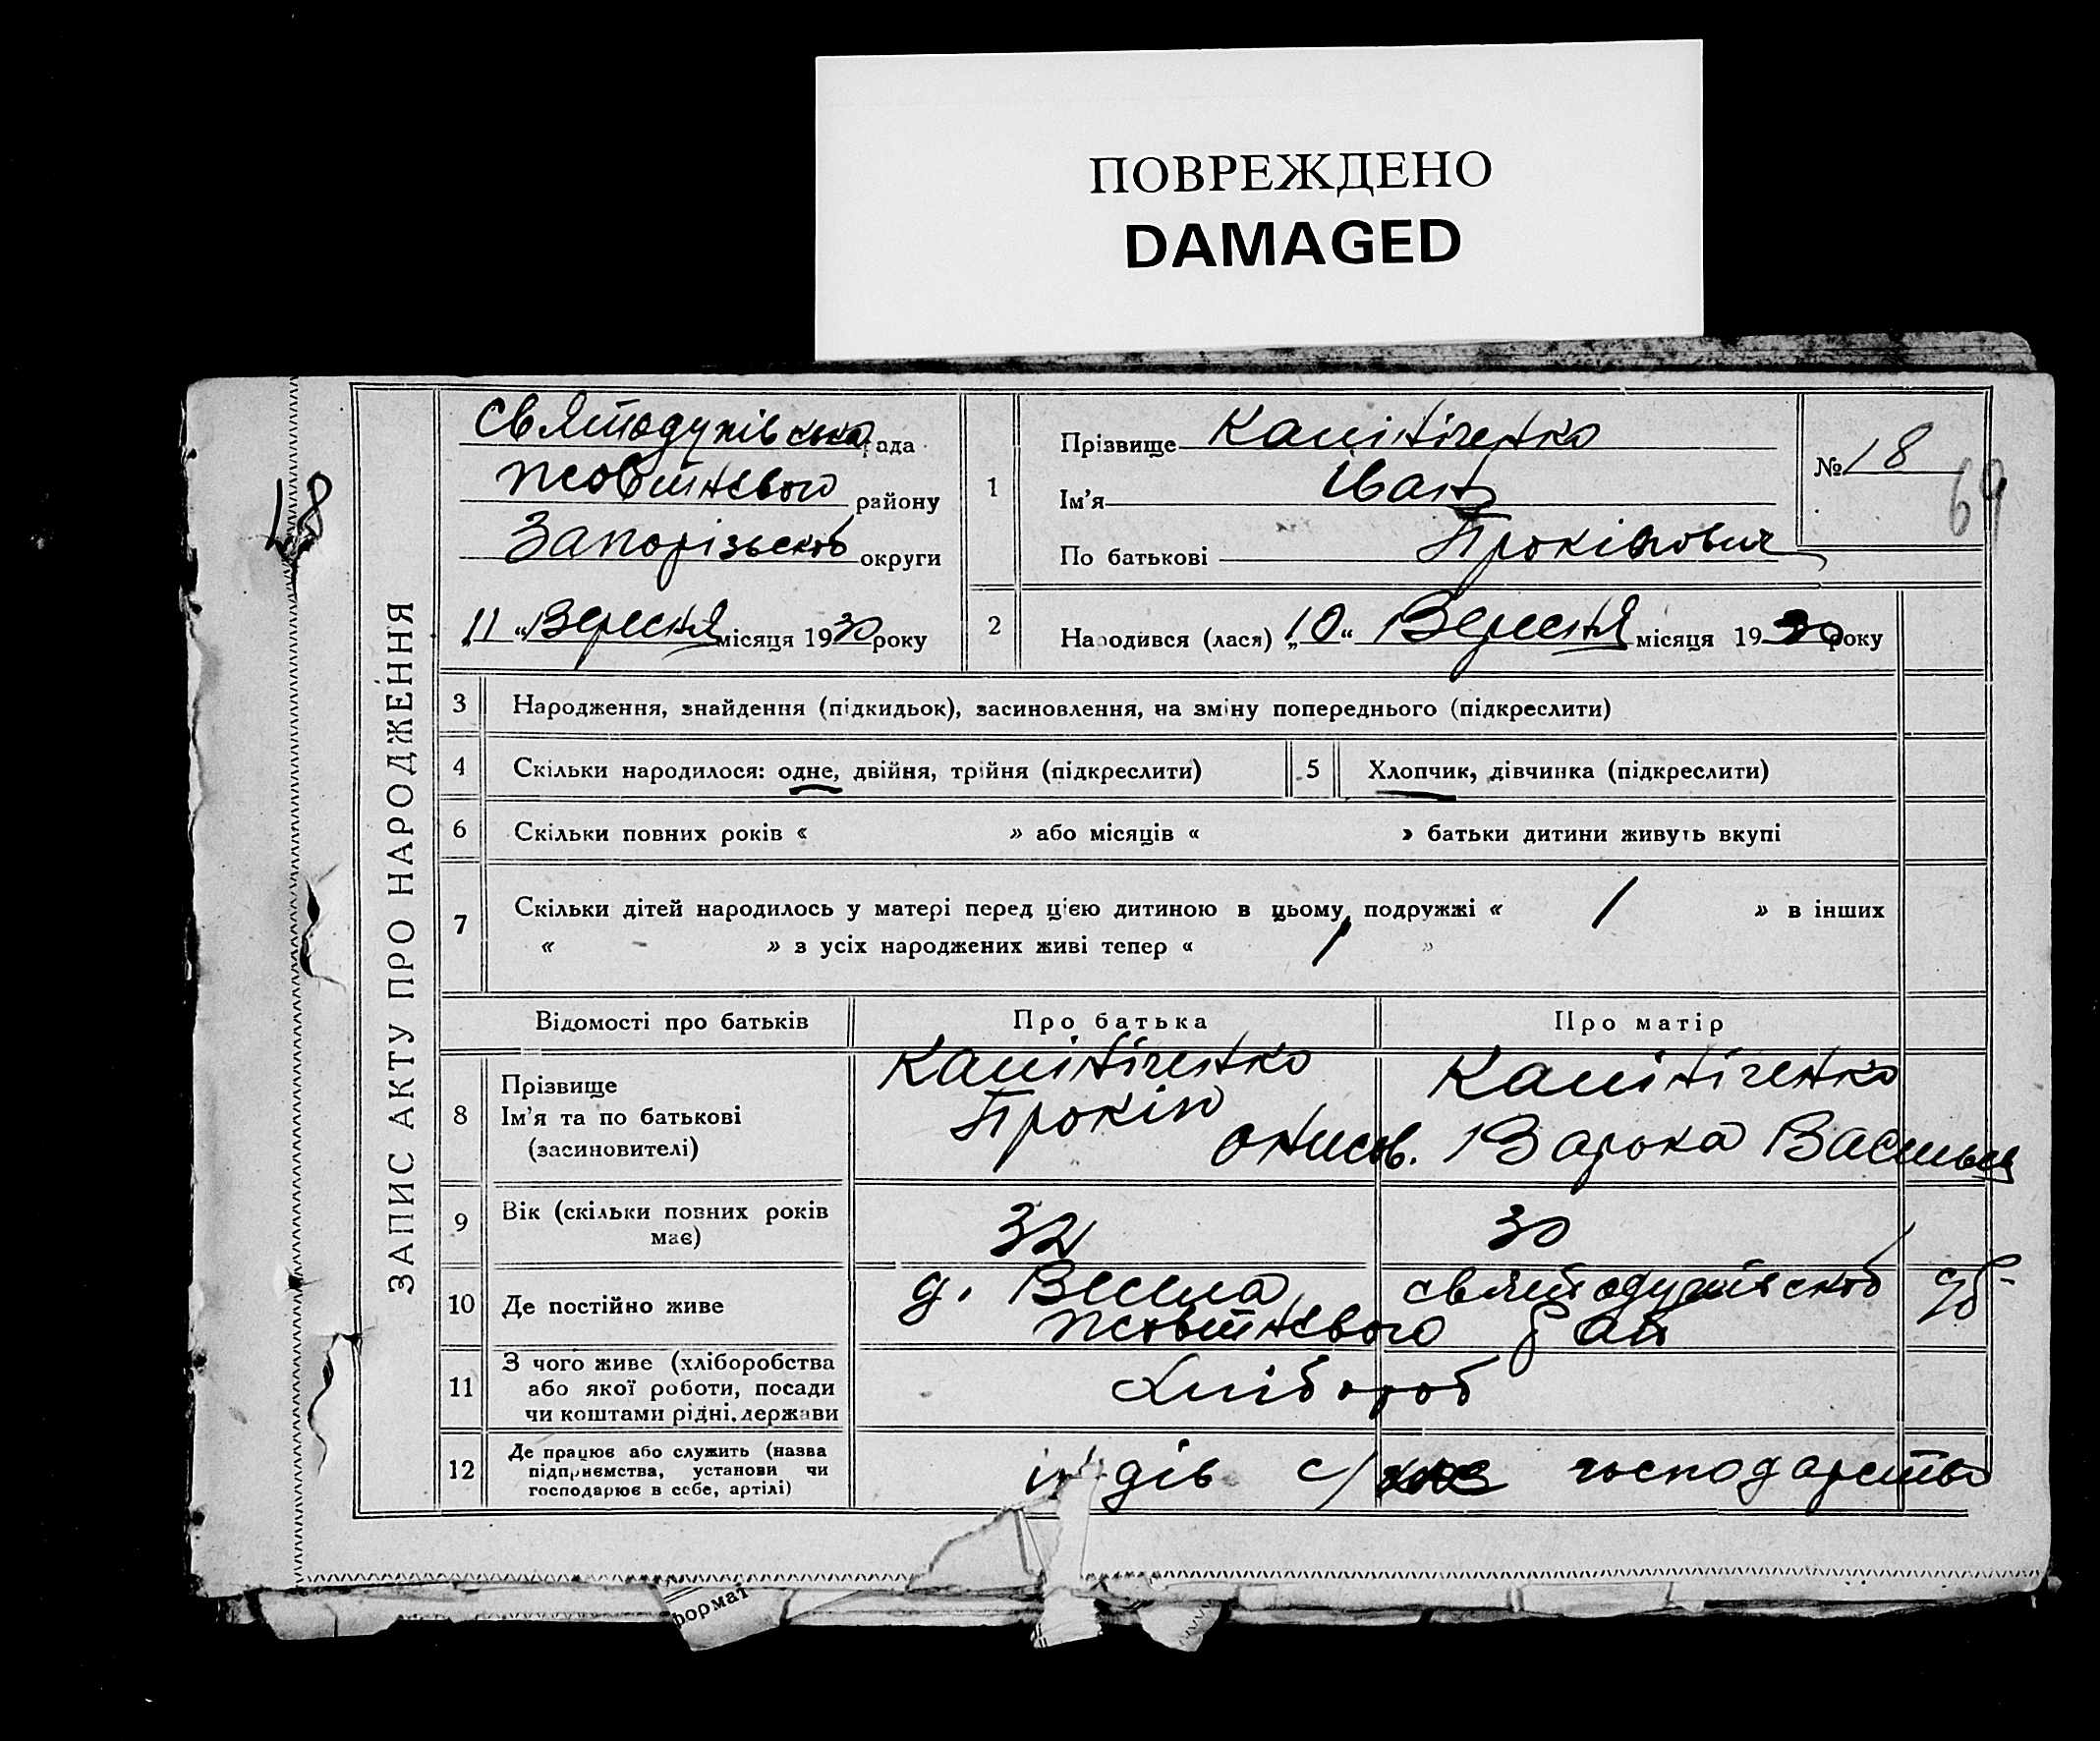 ПОВРЕЖДЕНО
DAMAGED
18
ЗАПИС АКТУ ПРО НАРОДЖЕННЯ
Святодухівська рада
Жовтневого району
Запорізької округи
„11“ Вересня місяця 1930 року
1
Прізвище Калініченко
Ім’я Іван
По батькові Прокіпович
№ 18
69
2 Народився (лася) „10“ Вересня місяця 1930 року
3 Народження, знайдення (підкидьок), засиновлення, на зміну попереднього (підкреслити)
4 Скільки народилося: одне, двійня, трійня (підкреслити) 5 Хлопчик, дівчинка (підкреслити)
6 Скільки повних років « » або місяців « » батьки дитини живуть вкупі
7 Скільки дітей народилось у матері перед цією дитиною в цьому подружжі « 1 » в інших
« - » з усіх народжених живі тепер « 1 »
Відомості про батьків Про батька Про матір
8 Прізвище
Ім’я та по батькові
(засиновителі)
Калініченко
Прокіп
Онисов.
Калініченко
Варока
9 Вік (скільки повних років
має)
32 30
10 Де постійно живе
д. Весела Святодухівської
Жовтневого рай
11 З чого живе (хліборобства
або якої роботи, посади
чи коштами рідні, держави
Хлібороб
12 Де працює або служить (назва
підприємства, установи чи
господарює в себе, артілі)
індів с/ господарство
формат